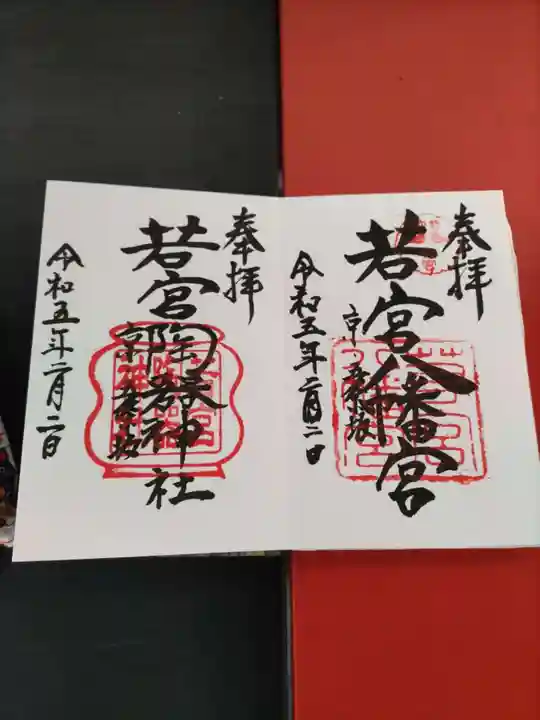 奉拝
若宮八幡宮
京 五條坂
令和五年二月二日
奉拝
若宮陶器神社
京 五條坂
令和五年二月二日